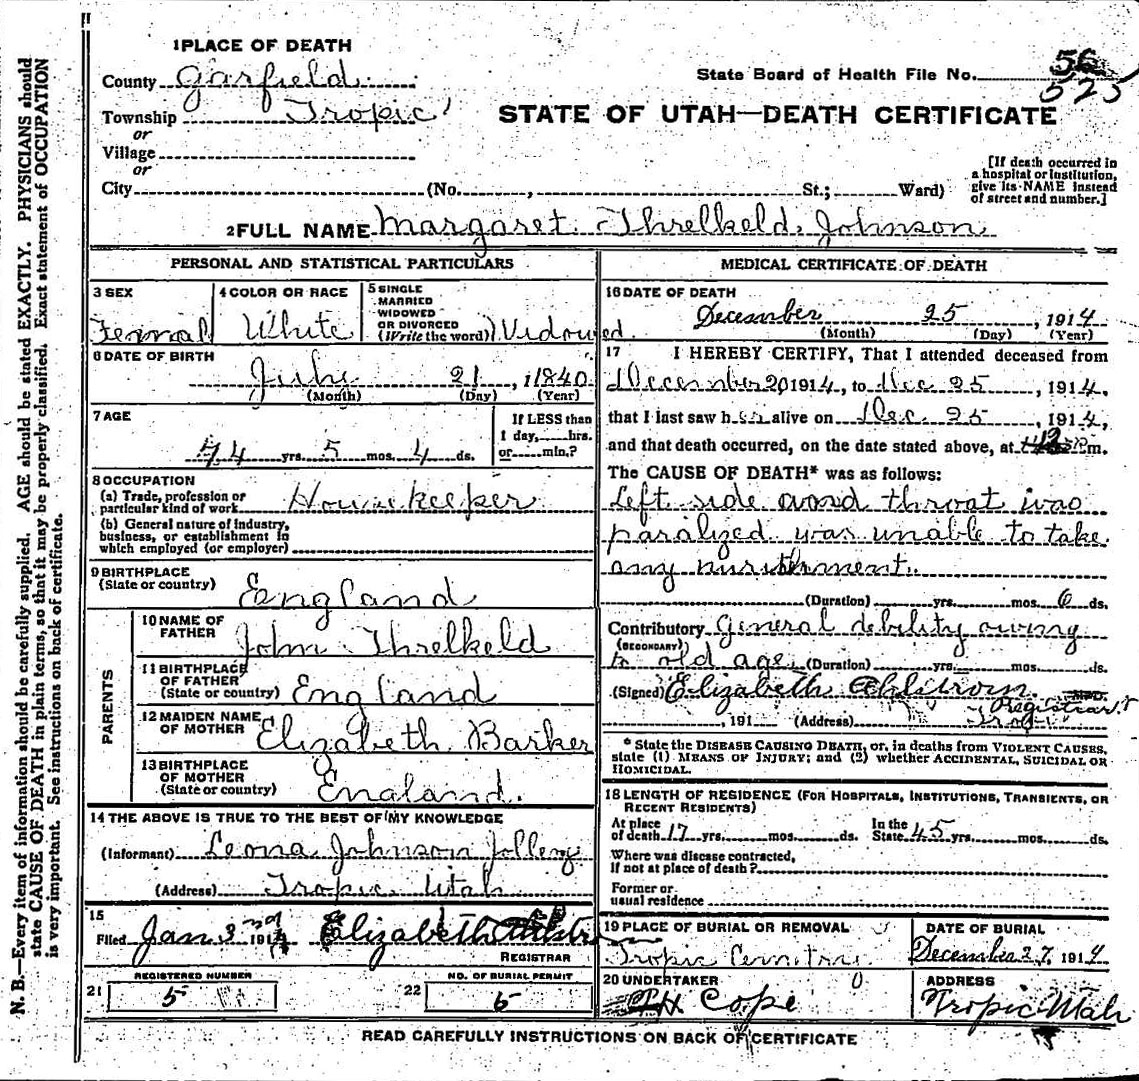 1 PLACE OF DEATH
County Garfield
Township Tropic
or
Village
or
City (No. , St.; Ward)
State Board of Health File No. 56
525
STATE OF UTAH—DEATH CERTIFICATE
[If death occurred in
a hospital or institution,
give its NAME instead
of street and number.]
2 FULL NAME Margaret Threlkeld Johnson
PERSONAL AND STATISTICAL PARTICULARS
3 SEX
Femal
4 COLOR OR RACE
White
5 SINGLE
MARRIED
WIDOWED
OR DIVORCED
(Write the word) Widowed
6 DATE OF BIRTH
21, 1840
(Month) (Day) (Year)
7 AGE
74 yrs. 5 mos. 4 ds.
If LESS than
1 day, hrs.
or min.?
8 OCCUPATION
(a) Trade, profession or
particular kind of work Housekeeper
(b) General nature of industry,
business, or establishment in
which employed (or employer)
9 BIRTHPLACE
(State or country) England
PARENTS
10 NAME OF
FATHER John Threlkeld
11 BIRTHPLACE
OF FATHER
(State or country) England
12 MAIDEN NAME
OF MOTHER Elizabeth Barker
13 BIRTHPLACE
OF MOTHER
(State or country) England.
14 THE ABOVE IS TRUE TO THE BEST OF MY KNOWLEDGE
(Informant) Leona Johnson Jolley
(Address) Tropic Utah
15
Filed Jan 3 191 Elizabeth
REGISTRAR
REGISTERED NUMBER
21 5
NO. OF BURIAL PERMIT
22 6
MEDICAL CERTIFICATE OF DEATH
16 DATE OF DEATH
December 25, 1914
(Month) (Day) (Year)
17 I HEREBY CERTIFY, That I attended deceased from
December 20 1914, to Dec 25, 1914,
that I last saw her alive on Dec. 25, 1914,
and that death occurred, on the date stated above, at m.
The CAUSE OF DEATH* was as follows:
Left side and throat was
paralized was unable to take
any
(Duration) yrs. mos. 6 ds.
Contributory General debility owing
(SECONDARY)
to old age (Duration) yrs. mos. ds.
(Signed) Elizabeth Ahlstrom
Registrar
, 191 (Address) Tropic
* State the DISEASE CAUSING DEATH, or, in deaths from VIOLENT CAUSES,
state (1) MEANS OF INJURY; and (2) whether ACCIDENTAL, SUICIDAL OR
HOMICIDAL.
18 LENGTH OF RESIDENCE (FOR HOSPITALS, INSTITUTIONS, TRANSIENTS, OR
RECENT RESIDENTS)
At place
of death 17 yrs. mos. ds.
In the
State 45 yrs. mos. ds.
Where was disease contracted,
if not at place of death?
Former or
usual residence
19 PLACE OF BURIAL OR REMOVAL
Tropic
DATE OF BURIAL
December 27, 1914
20 UNDERTAKER
Cope
ADDRESS
Tropic Utah
READ CAREFULLY INSTRUCTIONS ON BACK OF CERTIFICATE
N. B.—Every item of information should be carefully supplied. AGE should be stated EXACTLY. PHYSICIANS should
state CAUSE OF DEATH in plain terms, so that it may be properly classified. Exact statement of OCCUPATION
is very important. See instructions on back of certificate.